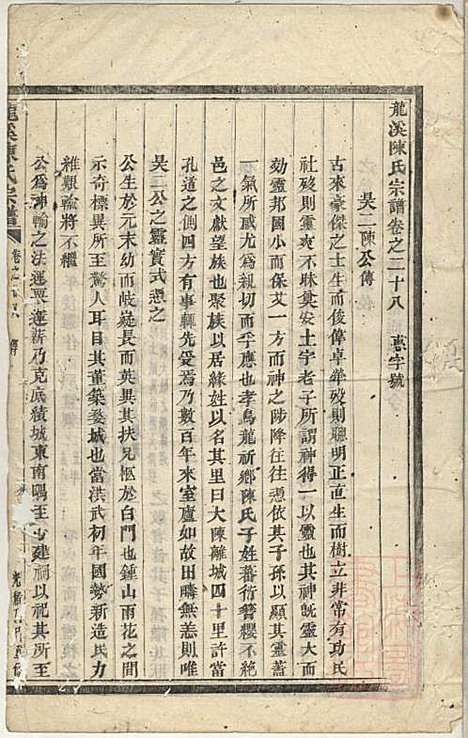 龍溪陳氏宗譜卷之二十八 字號
吳二陳公傳
古來豪傑之士生而俊偉卓犖歿則聰明正直生而樹立非常有功民
社歿則靈爽不昧奠安土宇老子所謂神得一以靈也其神既靈大而
効靈邦國小而保艾一方而神之陟降往往憑依其子孫以顯其靈蓋
一氣所感尤為親切而孚應也孝烏龍祈鄉陳氏子姓蕃衍簪纓不絕
邑之文獻望族也聚族以居緣姓以名其里曰大陳離城四十里許當
孔道之側四方有事輒先受焉乃數百年來室廬如故田疇無恙則唯
吳二公之靈實式憑之
公生於元末幼而岐嶷長而英異其扶兄柩於白門也鍾山雨花之間
示奇標異所至驚人耳目其董築婺城也當洪武初年國勢新造民力
維艱輸將不繼
公為神輸之法運甓運薪乃克底績城東南隅至今建祠以祀其所至
龍溪陳氏宗譜
卷之二十八 傳